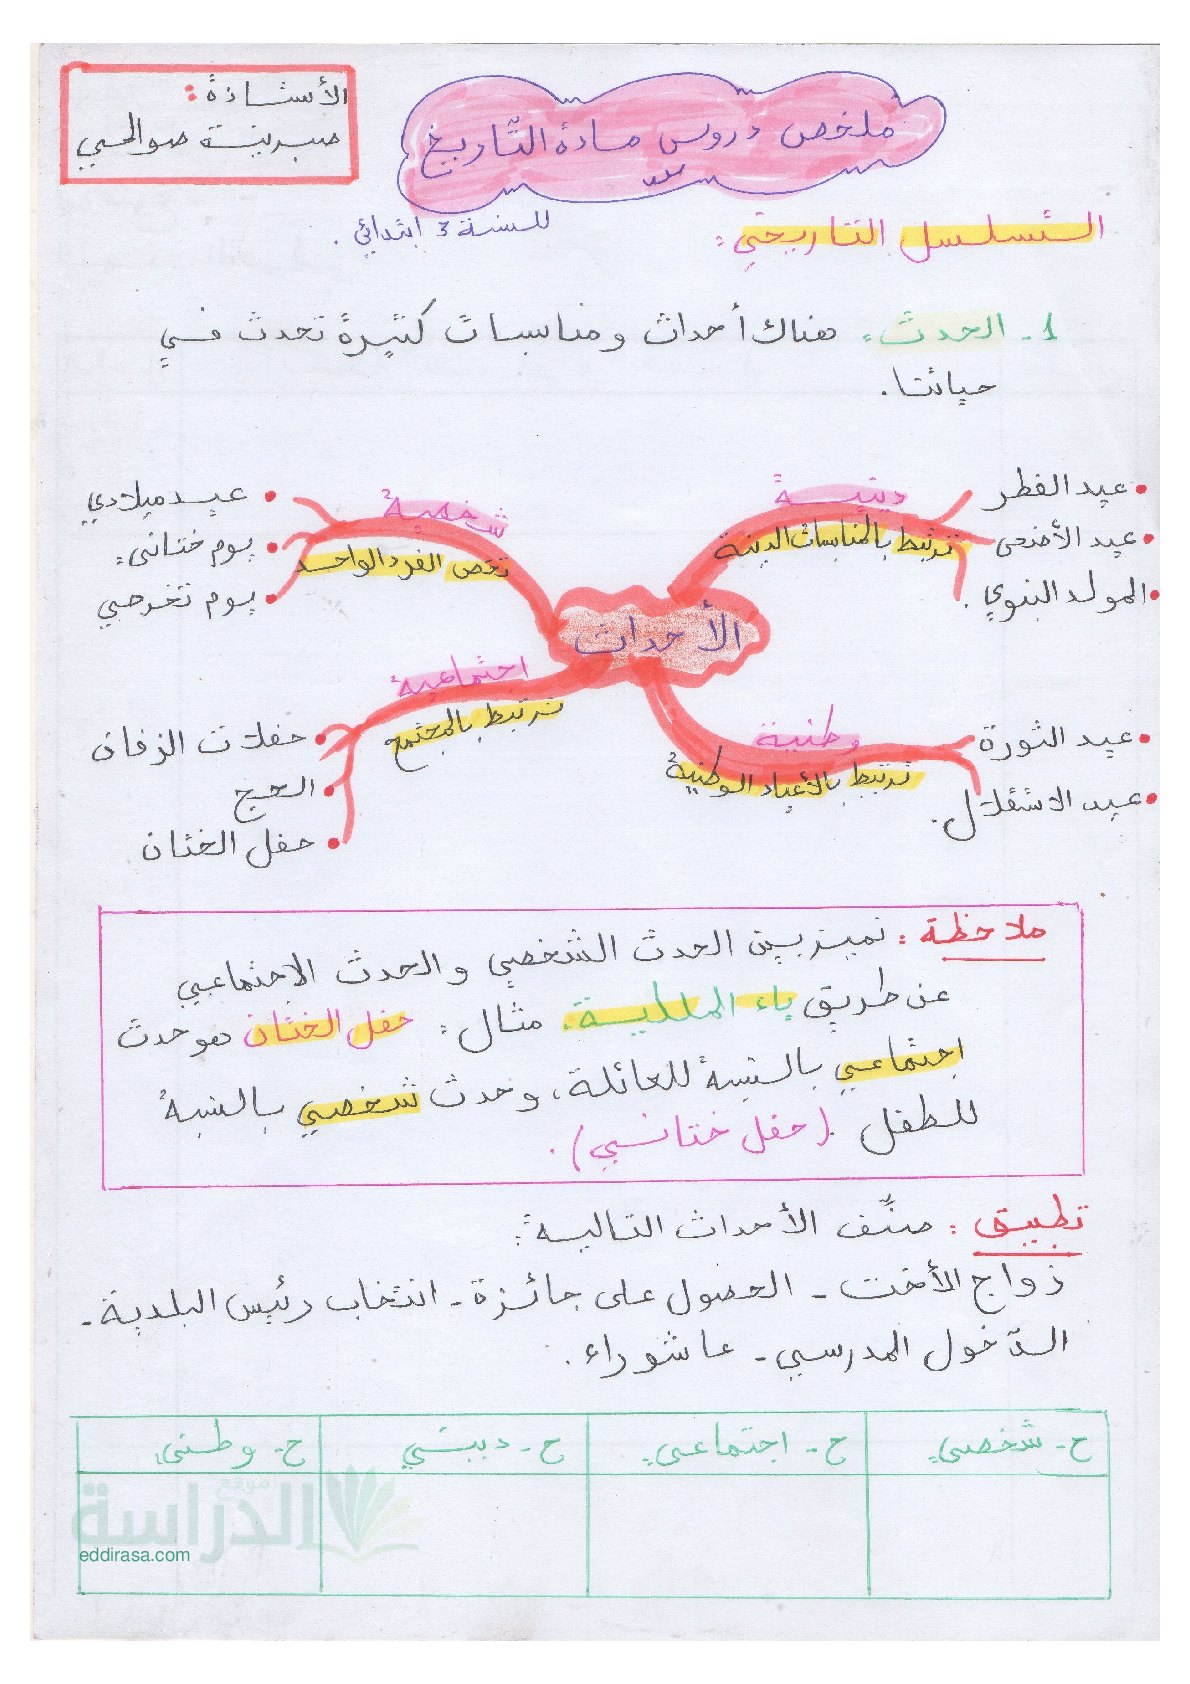 الأستاذة:
صبرينة صوالحي
ملخص دروس مادة التّاريخ
للسنة 3 ابتدائي.
التسلسل التاريخي:
1- الحدث: هناك أحداث ومناسبات كثيرة تحدث في
حياتنا.
الأحداث
دينية
ترتبط بالمناسبات الدينة
عيد الفطر
عيد الأضحى
المولد النبوي.
شخصية
تخص الفرد الواحد
عيد ميلادي
يوم ختاني
يوم تخرجي
وطنية
ترتبط بالأعياد الوطنية
عيد الثورة
عيد الاستقلال.
اجتماعية
ترتبط بالمجتمع
حفلات الزفاف
الحج
حفل الختان
ملاحظة: نميز بين الحدث الشخصي والحدث الاجتماعي
عن طريق ياء الملكية. مثال: حفل الختان هو حدث
اجتماعي بالنسبة للعائلة، وحدث شخصي بالنسبة
للطفل (حفل ختاني).
تطبيق: صنّف الأحداث التالية:
زواج الأخت - الحصول على جائزة - انتخاب رئيس البلدية -
الدّخول المدرسي - عاشوراء.
ح- شخصي ح- اجتماعي ح- ديني ح- وطني
موقع
الدراسة
eddirasa.com